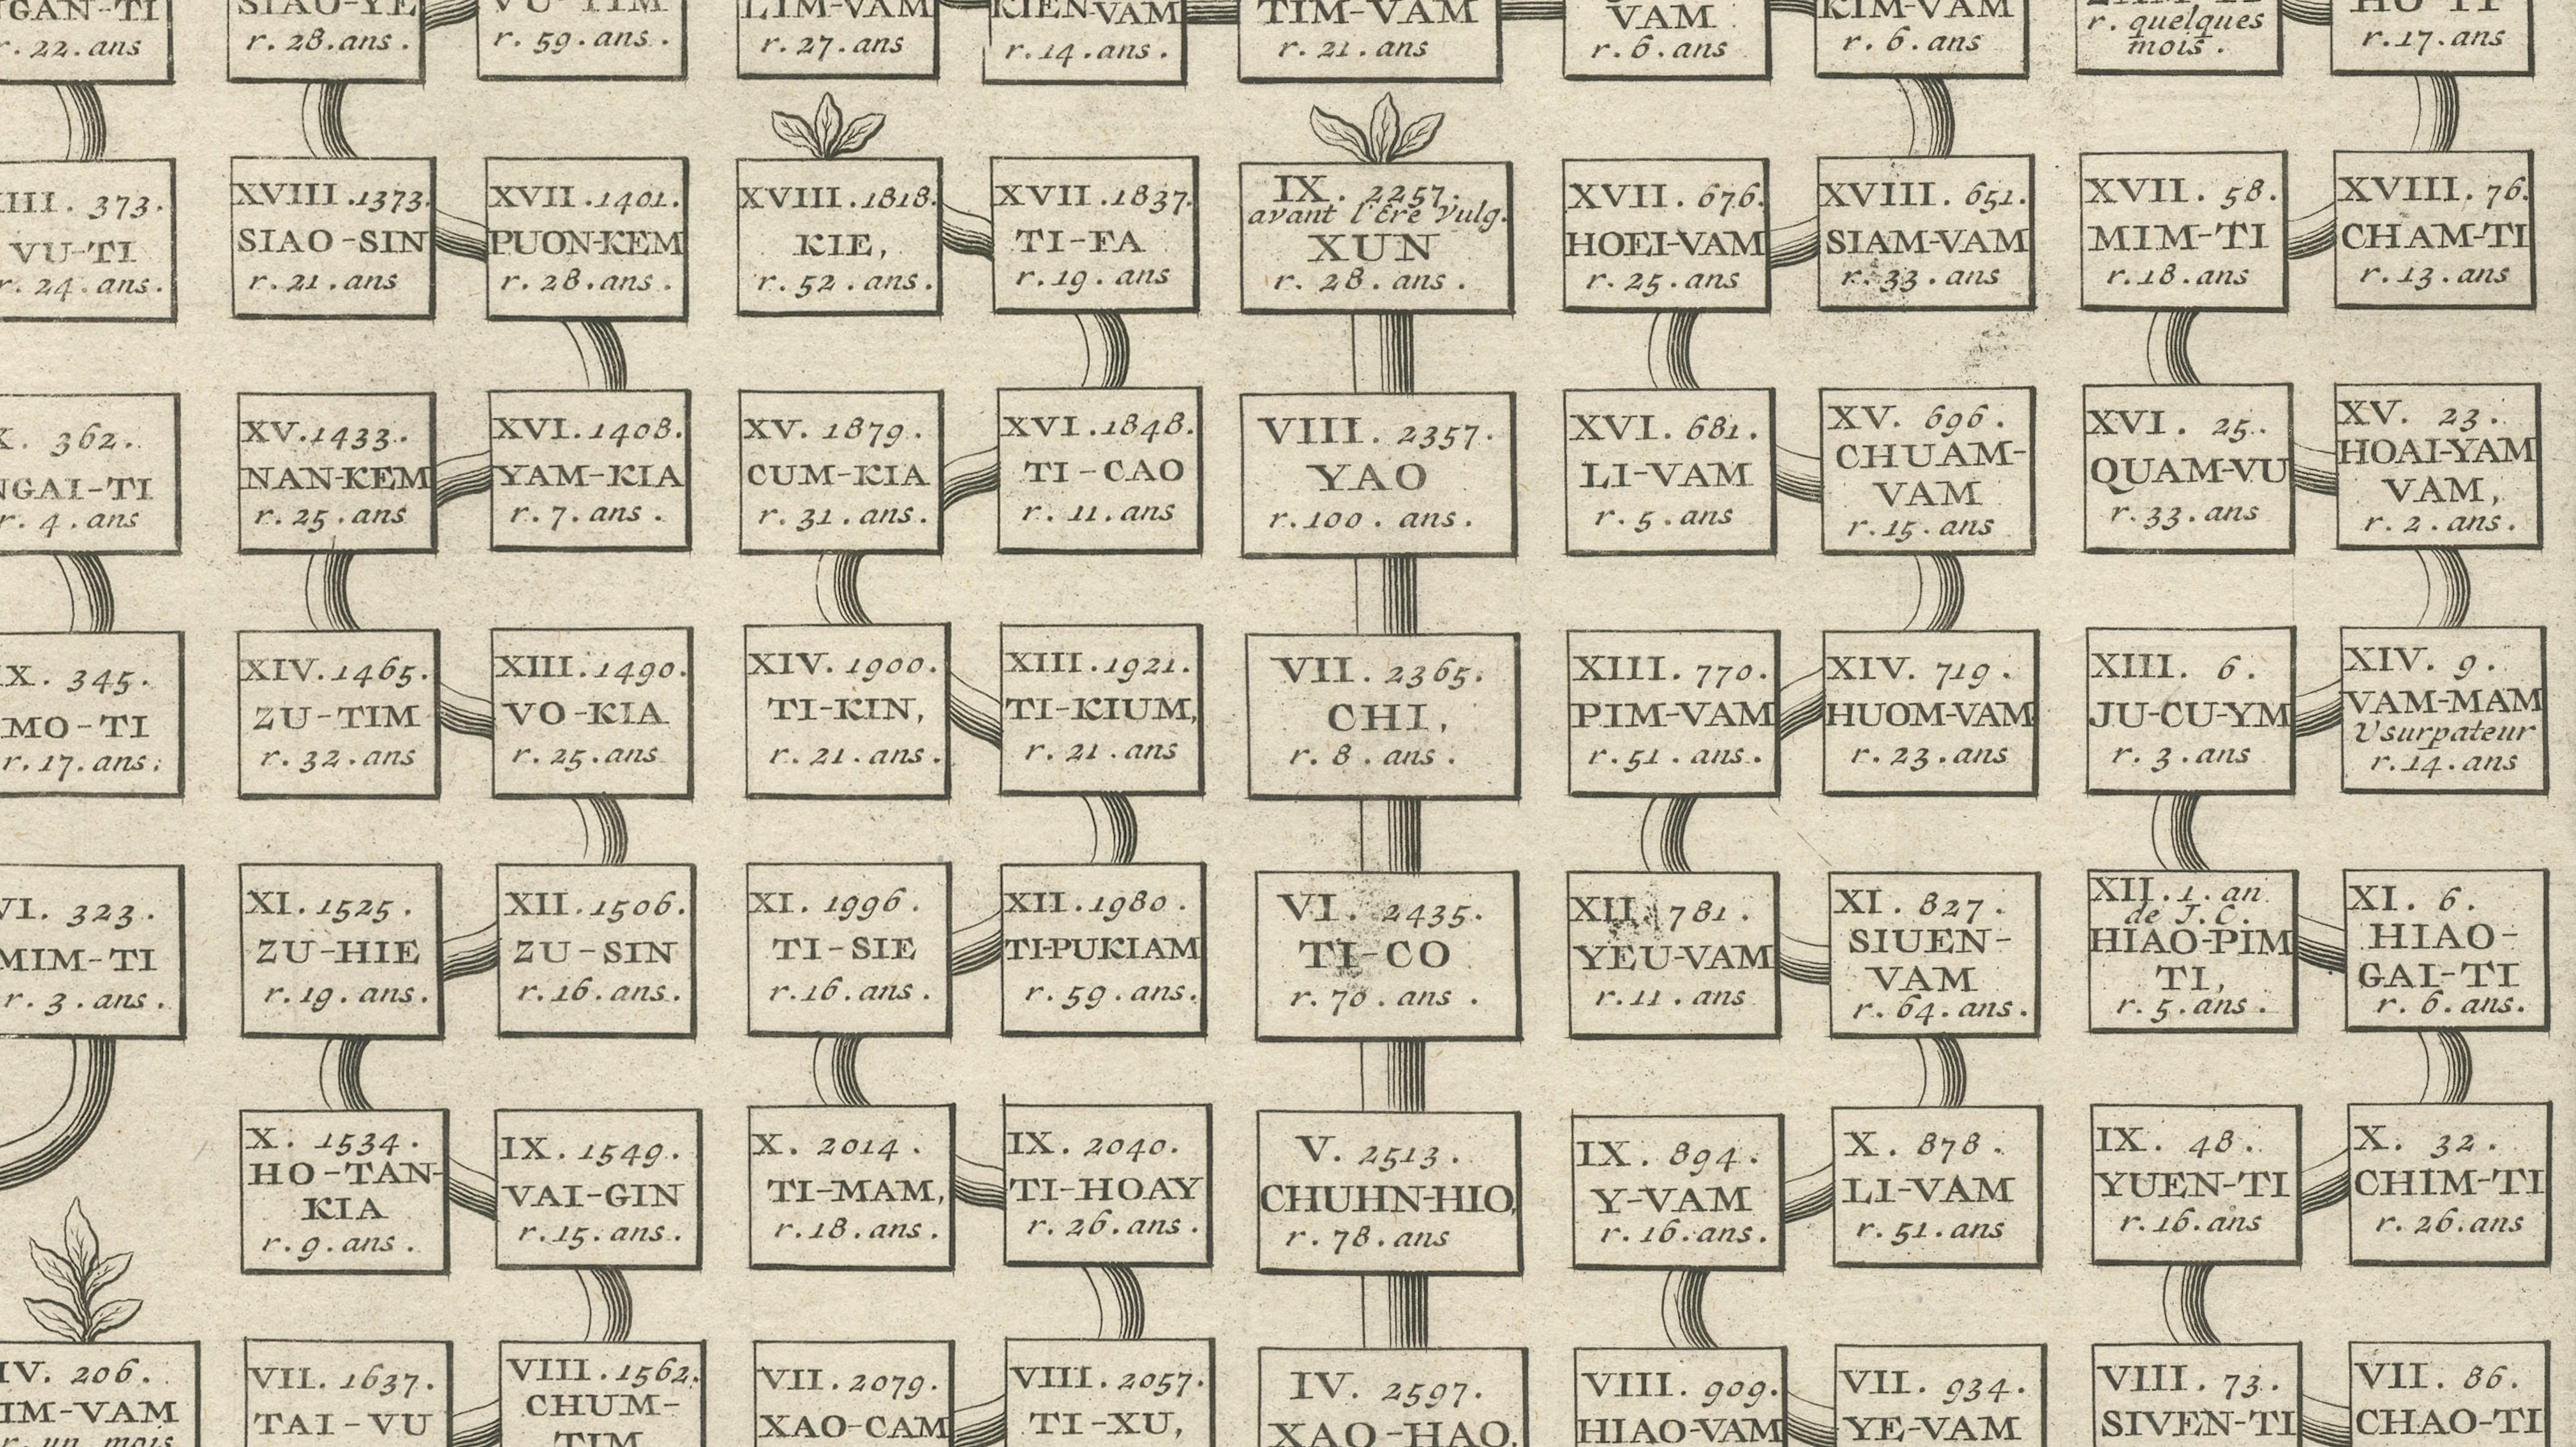 GAN-TI
r. 22. ans
SIAO-YE
r. 28. ans.
VU-TIM
r. 59. ans.
LIM-VAM
r. 27. ans
KIEN-VAM
r. 14. ans.
TIM-VAM
r. 21. ans
VAM
r. 6. ans
KIM-VAM
r. 6. ans
r. quelques
mois.
HO-TI
r. 17. ans
III. 373.
VU-TI
r. 24. ans.
XVIII. 1373.
SIAO-SIN
r. 21. ans
XVII. 1401.
PUON-KEM
r. 28. ans.
XVIII. 1818.
KIE,
r. 52. ans.
XVII. 1837.
TI-FA
r. 19. ans
IX. 2257.
avant l'Ere Vulg.
XUN
r. 28. ans.
XVII. 676.
HOEI-VAM
r. 25. ans
XVIII. 651.
SIAM-VAM
r. 33. ans
XVII. 58.
MIM-TI
r. 18. ans
XVIII. 76.
CHAM-TI
r. 13. ans
X. 362.
NGAI-TI
r. 4. ans
XV. 1433.
NAN-KEM
r. 25. ans
XVI. 1408.
YAM-KIA
r. 7. ans.
XV. 1879.
CUM-KIA
r. 31. ans.
XVI. 1848.
TI-CAO
r. 11. ans
VIII. 2357.
YAO
r. 100. ans.
XVI. 681.
LI-VAM
r. 5. ans
XV. 696.
CHUAM-
VAM
r. 15. ans
XVI. 25.
QUAM-VU
r. 33. ans
XV. 23.
HOAI-YAM
VAM,
r. 2. ans.
IX. 345.
MO-TI
r. 17. ans.
XIV. 1465.
ZU-TIM
r. 32. ans
XIII. 1490.
VO-KIA
r. 25. ans
XIV. 1900.
TI-KIN,
r. 21. ans.
XIII. 1921.
TI-KIUM,
r. 21. ans
VII. 2365.
CHI,
r. 8. ans.
XIII. 770.
PIM-VAM
r. 51. ans.
XIV. 719.
HUOM-VAM
r. 23. ans
XIII. 6.
JU-CU-YM
r. 3. ans
XIV. 9.
VAM-MAM
Usurpateur
r. 14. ans
VI. 323.
MIM-TI
r. 3. ans.
XI. 1525.
ZU-HIE
r. 19. ans.
XII. 1506.
ZU-SIN
r. 16. ans.
XI. 1996.
TI-SIE
r. 16. ans.
XII. 1980.
TI-PUKIAM
r. 59. ans.
VI. 2435.
TI-CO
r. 70. ans.
XII. 781.
YEU-VAM
r. 11. ans
XI. 827.
SIUEN-
VAM
r. 64. ans.
XII. 1. an
de J. C.
HIAO-PIM
TI,
r. 5. ans.
XI. 6.
HIAO-
GAI-TI
r. 6. ans.
X. 1534.
HO-TAN-
KIA
r. 9. ans.
IX. 1549.
VAI-GIN
r. 15. ans.
X. 2014.
TI-MAM,
r. 18. ans.
IX. 2040.
TI-HOAY
r. 26. ans.
V. 2513.
CHUHN-HIO,
r. 78. ans
IX. 894.
Y-VAM
r. 16. ans.
X. 878.
LI-VAM
r. 51. ans
IX. 48.
YUEN-TI
r. 16. ans
X. 32.
CHIM-TI
r. 26. ans
IV. 206.
IM-VAM
r. un mois
VII. 1637.
TAI-VU
VIII. 1562.
CHUM-
TIM
VII. 2079.
XAO-CAM
VIII. 2057.
TI-XU,
IV. 2597.
XAO-HAO,
VIII. 909.
HIAO-VAM
VII. 934.
YE-VAM
VIII. 73.
SIVEN-TI
VII. 86.
CHAO-TI